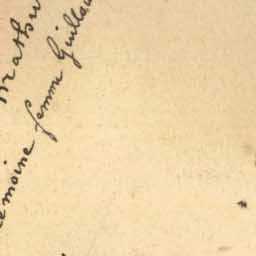 Mathu
emoine femme Guillau